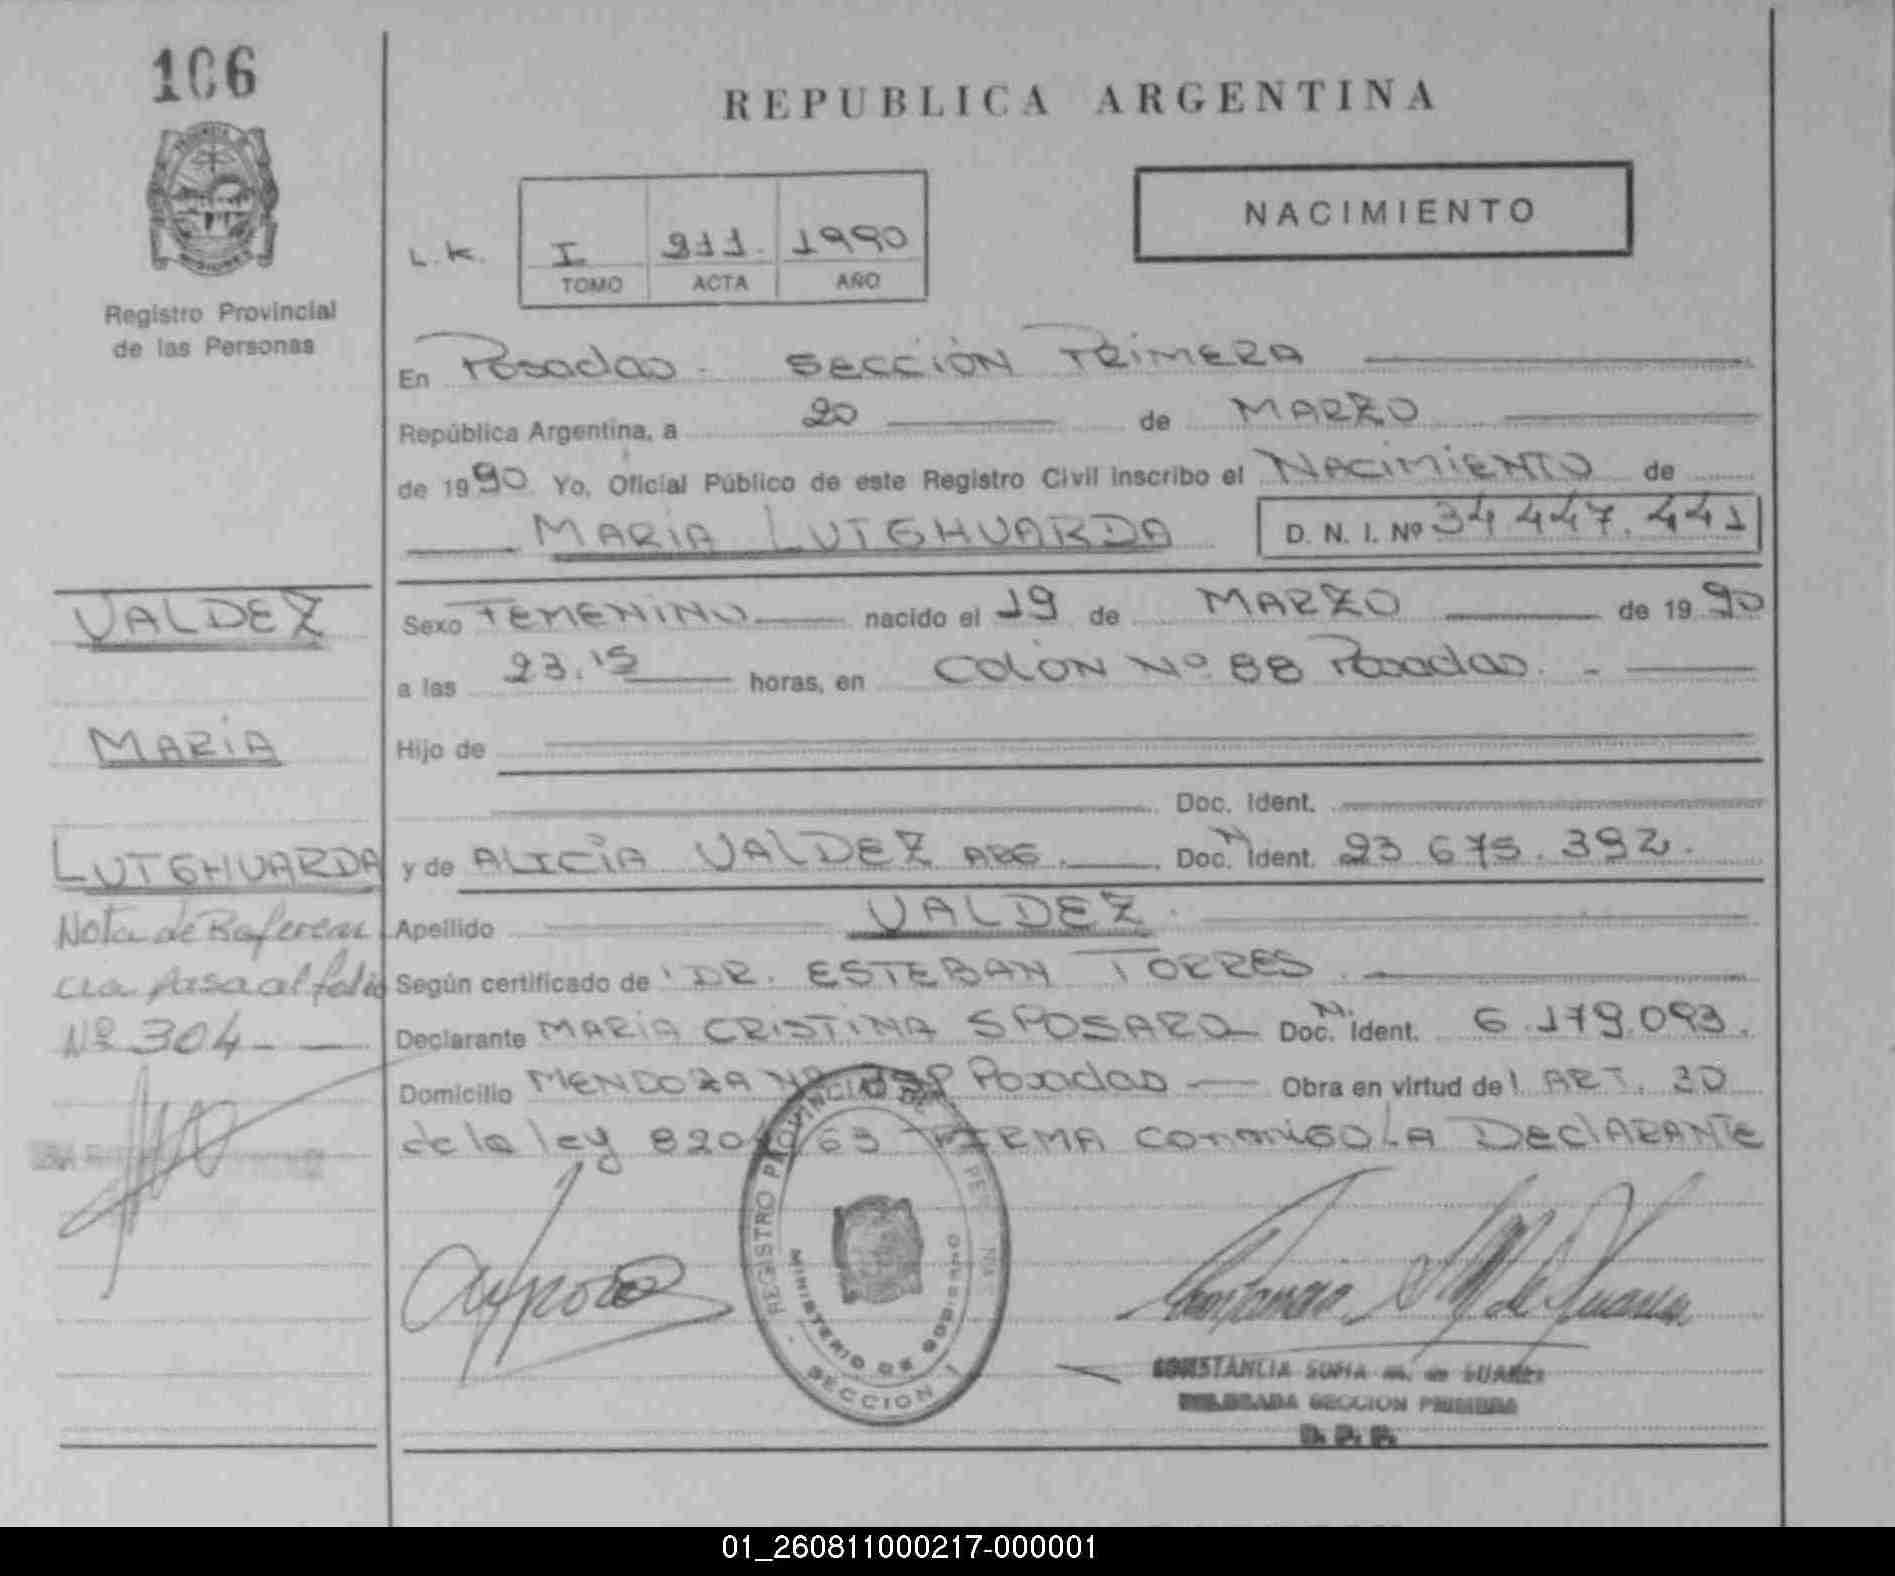 106
REPUBLICA ARGENTINA
NACIMIENTO
L.K. I 211. 1990
TOMO ACTA AÑO
Registro Provincial
de las Personas
En Posadas - SECCIÓN PRIMERA
República Argentina, a 20 de MARZO
de 1990 Yo, Oficial Público de este Registro Civil inscribo el NACIMIENTO de
MARIA LUTGHUARDA D. N. I. Nº 34 447.441
VALDEZ
MARIA
LUTGHUARDA
Nota de Referen
cia pasa al folio
Nº 304 - -
Sexo FEMENINO nacido el 19 de MARZO de 1990
a las 23.15 horas, en COLÓN Nº 88 Posadas. -
Hijo de
Doc. Ident.
y de ALICIA VALDEZ ARG. Doc. N. Ident. 23 675.392.
Apellido VALDEZ
Según certificado de DR. ESTEBAN TORRES
Declarante MARIA CRISTINA SPOSARO Doc. N. Ident. 6.179.093.
Domicilio MENDOZA Posadas Obra en virtud del ART. 30
de la ley 8204/63 FIRMA CONMIGO LA DECLARANTE
REGISTRO PROVINCIAL DE
MINISTERIO DE GOBIERNO
SECCION 1
CONSTANCIA SOFIA M. de SUAREZ
DELEGADA SECCION PRIMERA
01_260811000217-000001